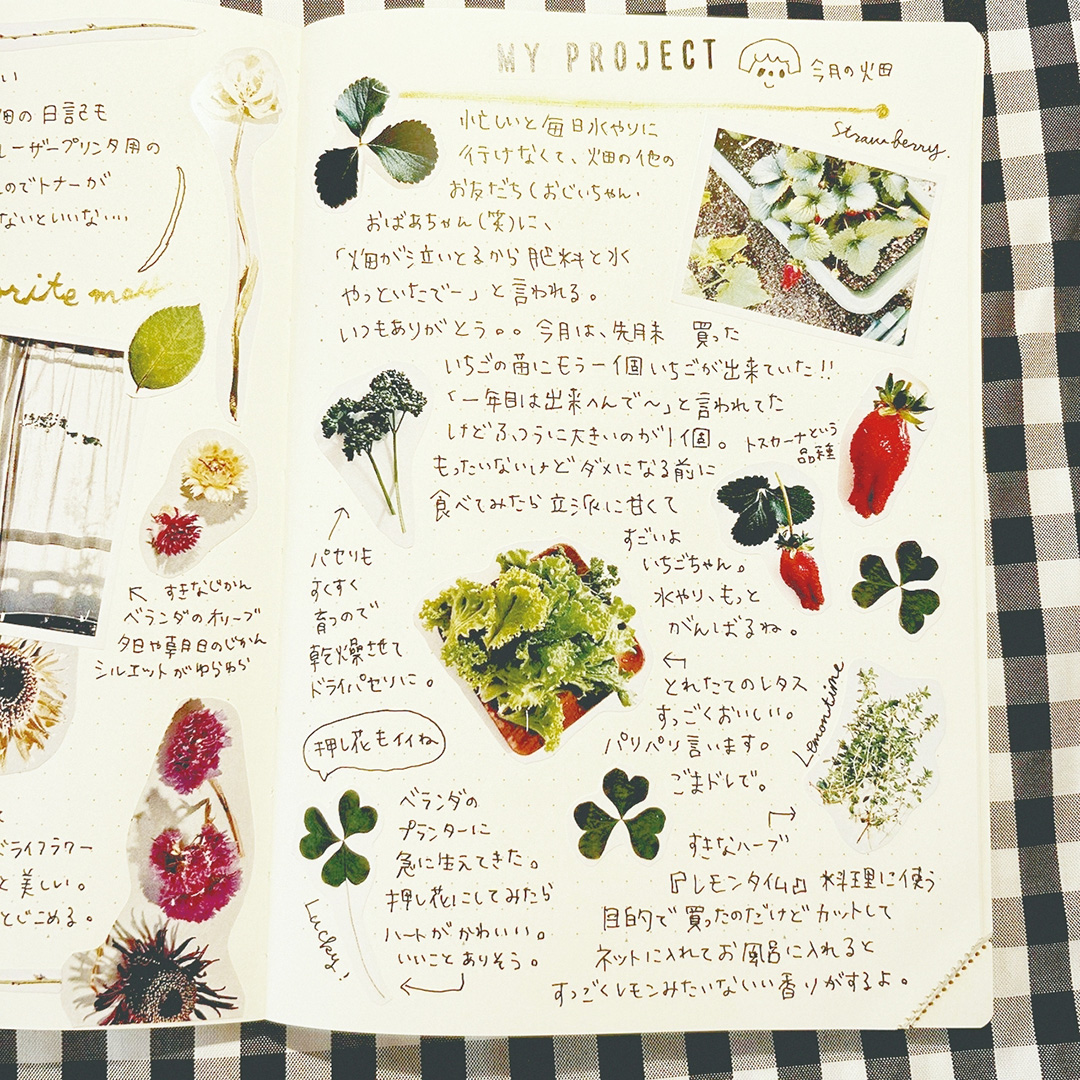 い
畑の日記も
レーザープリンタ用の
のでトナーが
ないといいない…
orite
↖ すきなじかん
ベランダのオリーブ
夕日や朝日のじかん
シルエットがゆらゆら
ドライフラワー
と美しい。
とじこめる。
MY PROJECT 今月の畑
忙しいと毎日水やりに
行けなくて、畑の他の
お友だち(おじいちゃん、
おばあちゃん(笑)に、
「畑が泣いとるから肥料と水
やっといたでー」と言われる。
いつもありがとう。。今月は、先月末 買った
いちごの苗にもう一個いちごが出来ていた!!
「一年目は出来へんで〜」と言われてた
けどふつうに大きいのが1個。
もったいないけどダメになる前に
食べてみたら立派に甘くて
すごいよ
いちごちゃん。
水やり、もっと
がんばるね。
Strawberry.
トスカーナという
品種
パセリも
すくすく
育つので
乾燥させて
ドライパセリに。
←
とれたてのレタス
すっごくおいしい。
パリパリ言います。
ごまドレで。
押し花もイイね
ベランダの
プランターに
急に生えてきた。
押し花にしてみたら
ハートがかわいい。
いいことありそう。
Lucky!
Lemontime
すきなハーブ
『レモンタイム』料理に使う
目的で買ったのだけどカットして
ネットに入れてお風呂に入れると
すっごくレモンみたいないい香りがするよ。